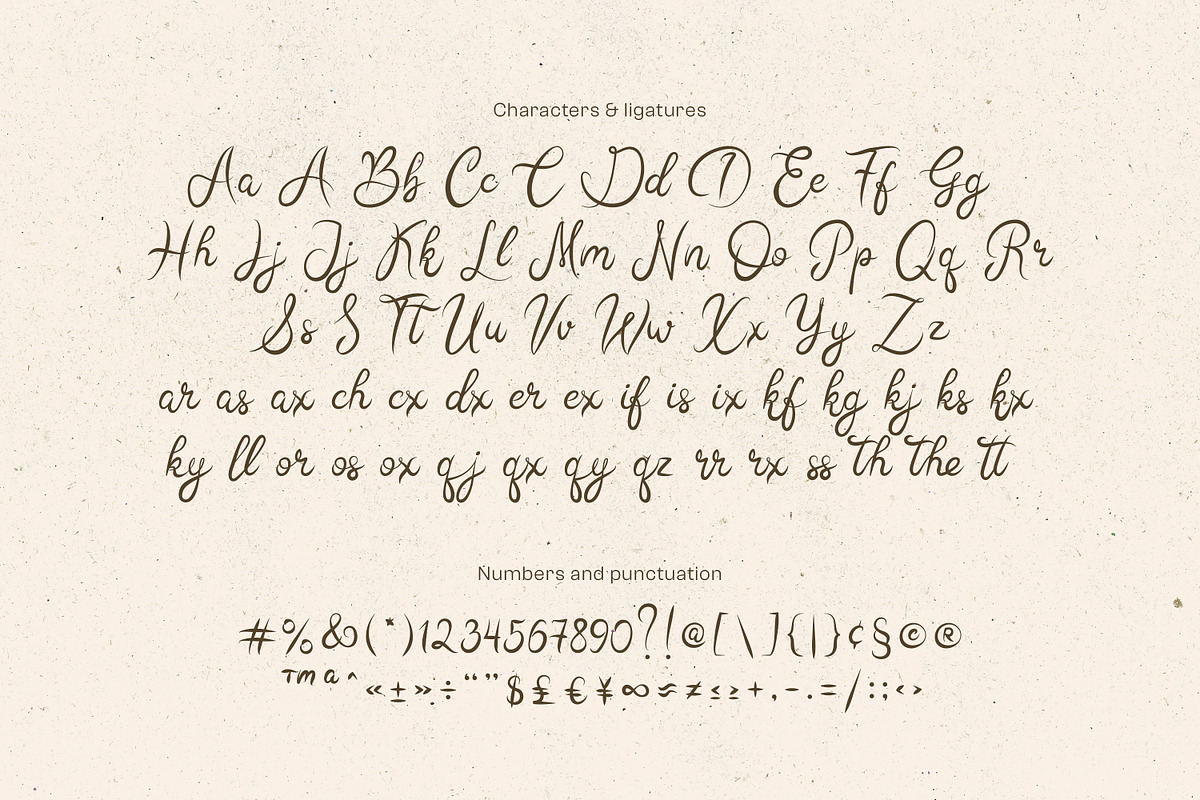 Characters & ligatures
Aa A Bb Cc C Dd D Ee Ff Gg
Hh Jj Jj Kk Ll Mm Nn Oo Pp Qq Rr
Ss S Tt Uu Vv Ww Xx Yy Zz
ar as ax ch cx dx er ex if is ix kf kg kj ks kx
ky ll or os ox qj qx qy qz rr rx ss th the tt
Numbers and punctuation
#%&(*)1234567890?!@[\]{|}¢§©®
™ª^«±»÷“”$£€¥∞≈≠≤≥+,-.=/:;‹›